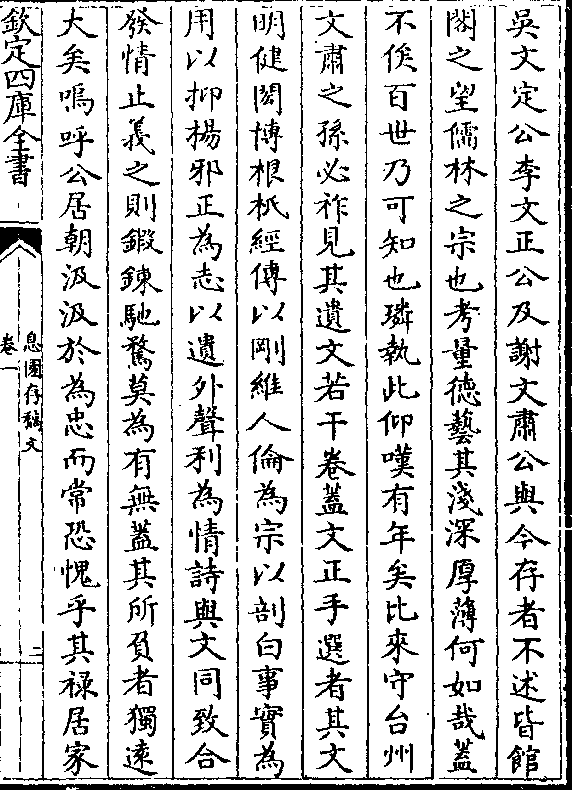 吳文定公李文正公及謝文肅公與今存者不述皆館
閣之望儒林之宗也考量德藝其淺深厚薄何如哉蓋
不俟百世乃可知也璘執此仰嘆有年矣比來守台州
文肅之孫必祚見其遺文若干卷蓋文正手選者其文
明健閎博根柢經傳以剛維人倫為宗以剖白事實為
用以抑揚邪正為志以遺外聲利為情詩與文同致合
發情止義之則鍛鍊馳騖莫為有無蓋其所負者獨遠
大矣嗚呼公居朝汲汲於為忠而常恐愧乎其祿居家
欽定四庫全書
息園存稿文
卷一
二